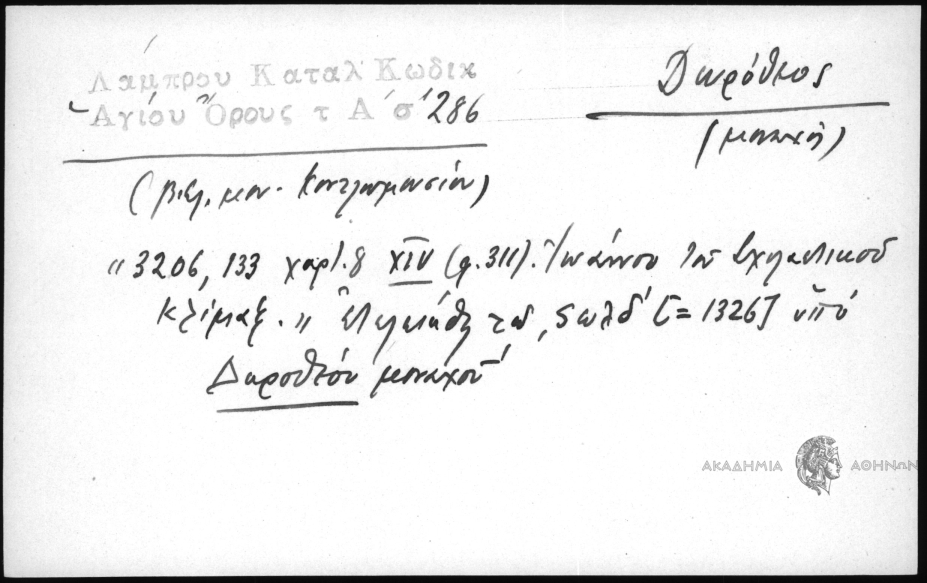 Λάμπρου Καταλ Κωδικ
Αγίου Όρους τ Α' σ' 286
Δωρόθεος
(μοναχός)
(βιβλ. μον. Κουτλουμουσίου)
"3206, 133 χαρτ. 8 XIV (φ. 311). Ἰωάννου τοῦ Σχολαστικοῦ
Κλίμαξ." Ἐτελειώθη τῷ ͵ςωλδ' [= 1326] ὑπό
Δωροθέου μοναχοῦ
ΑΚΑΔΗΜΙΑ ΑΘΗΝΩΝ